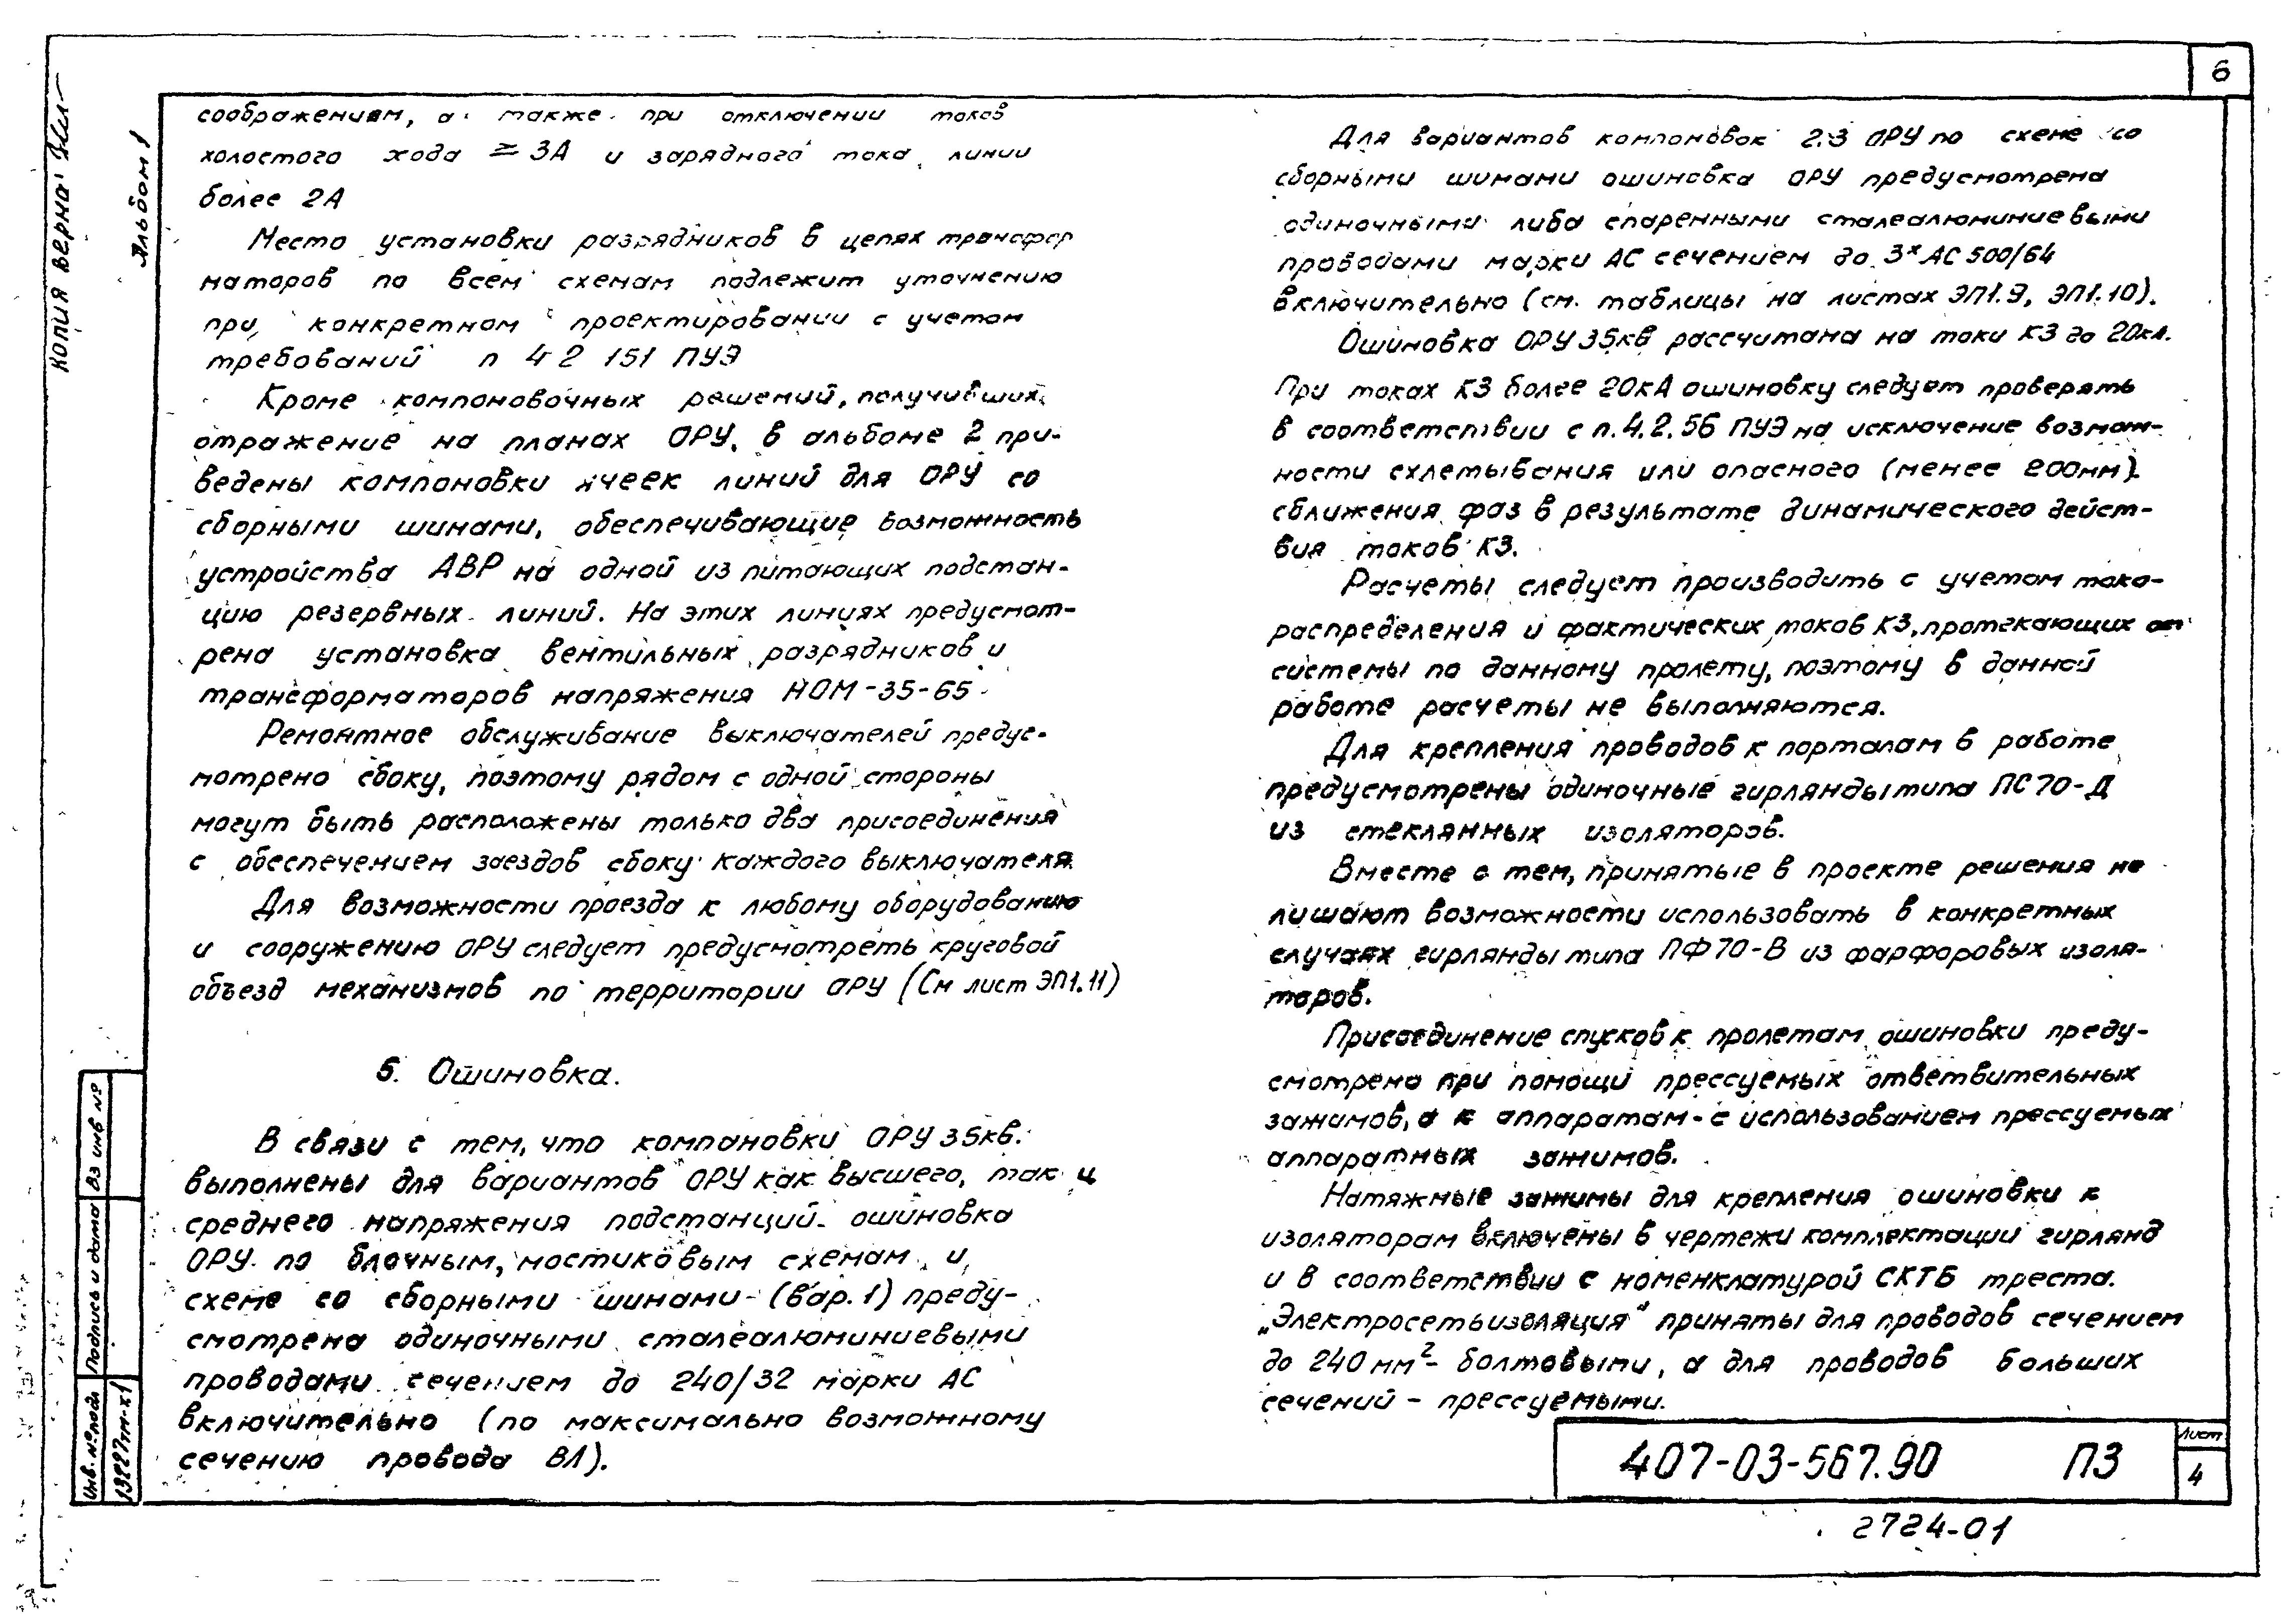 6
Копия верна
Альбом 1
соображениям, а также при отключении токов
холостого хода ≥ 3А и зарядного тока линии
более 2А
Место установки разрядников в цепях трансфор
маторов по всем схемам подлежит уточнению
при конкретном проектировании с учетом
требований п 4 2 151 ПУЭ
Кроме компоновочных решений, получивших
отражение на планах ОРУ, в альбоме 2 при-
ведены компоновки ячеек линий для ОРУ со
сборными шинами, обеспечивающие возможность
устройства АВР на одной из питающих подстан-
цию резервных линий. На этих линиях предусмот-
рена установка вентильных разрядников и
трансформаторов напряжения НОМ-35-65
Ремонтное обслуживание выключателей предус-
мотрено сбоку, поэтому рядом с одной стороны
могут быть расположены только два присоединения
с обеспечением заездов сбоку каждого выключателя.
Для возможности проезда к любому оборудованию
и сооружению ОРУ следует предусмотреть круговой
объезд механизмов по территории ОРУ (См лист ЭП1.11)
5. Ошиновка.
В связи с тем, что компановки ОРУ 35кв.
выполнены для вариантов ОРУ как высшего, так и
среднего напряжения подстанций. ошиновка
ОРУ по блочным, мостиковым схемам и
схеме со сборными шинами (вар. 1) преду-
смотрена одиночными сталеалюминиевыми
проводами сечением до 240/32 марки АС
включительно (по максимально возможному
сечению провода ВЛ).
Для вариантов компоновок 2.3 ОРУ по схеме со
сборными шинами ошиновка ОРУ предусмотрена
одиночными либо спаренными сталеалюминиевыми
проводами марки АС сечением до 3х АС 500/64
включительно (см. таблицы на листах ЭП1.9, ЭП1.10).
Ошиновка ОРУ 35кв рассчитана на токи КЗ до 20кА.
При токах КЗ более 20кА ошиновку следует проверять
в соответствии с п. 4.2.56 ПУЭ на исключение возмож-
ности схлетывания или опасного (менее 200мм)
сближения фаз в результате динамического дейст-
вия токов КЗ.
Расчеты следует производить с учетом тока-
распределения и фактических токов КЗ, протекающих от
системы по данному пролету, поэтому в данной
работе расчеты не выполняются.
Для крепления проводов к порталам в работе
предусмотрены одиночные гирлянды типа ПС70-Д
из стеклянных изоляторов.
Вместе с тем, принятые в проекте решения не
лишают возможности использовать в конкретных
случаях гирлянды типа ПФ70-В из фарфоровых изоля-
торов.
Присоединение спусков к пролетам ошиновки преду-
смотрено при помощи прессуемых ответвительных
зажимов, а к аппаратам - с использованием прессуемых
аппаратных зажимов.
Натяжные зажимы для крепления ошиновки к
изоляторам включены в чертежи комплектации гирлянд
и в соответствии с номенклатурой СКТБ треста.
„Электросетьизоляция" приняты для проводов сечением
до 240 мм² - болтовыми, а для проводов больших
сечений - прессуемыми.
Вз инв №
Подпись и дата
Инв. № подл
13227тм-х1
407-03-567.90 ПЗ
Лист
4
2724-01